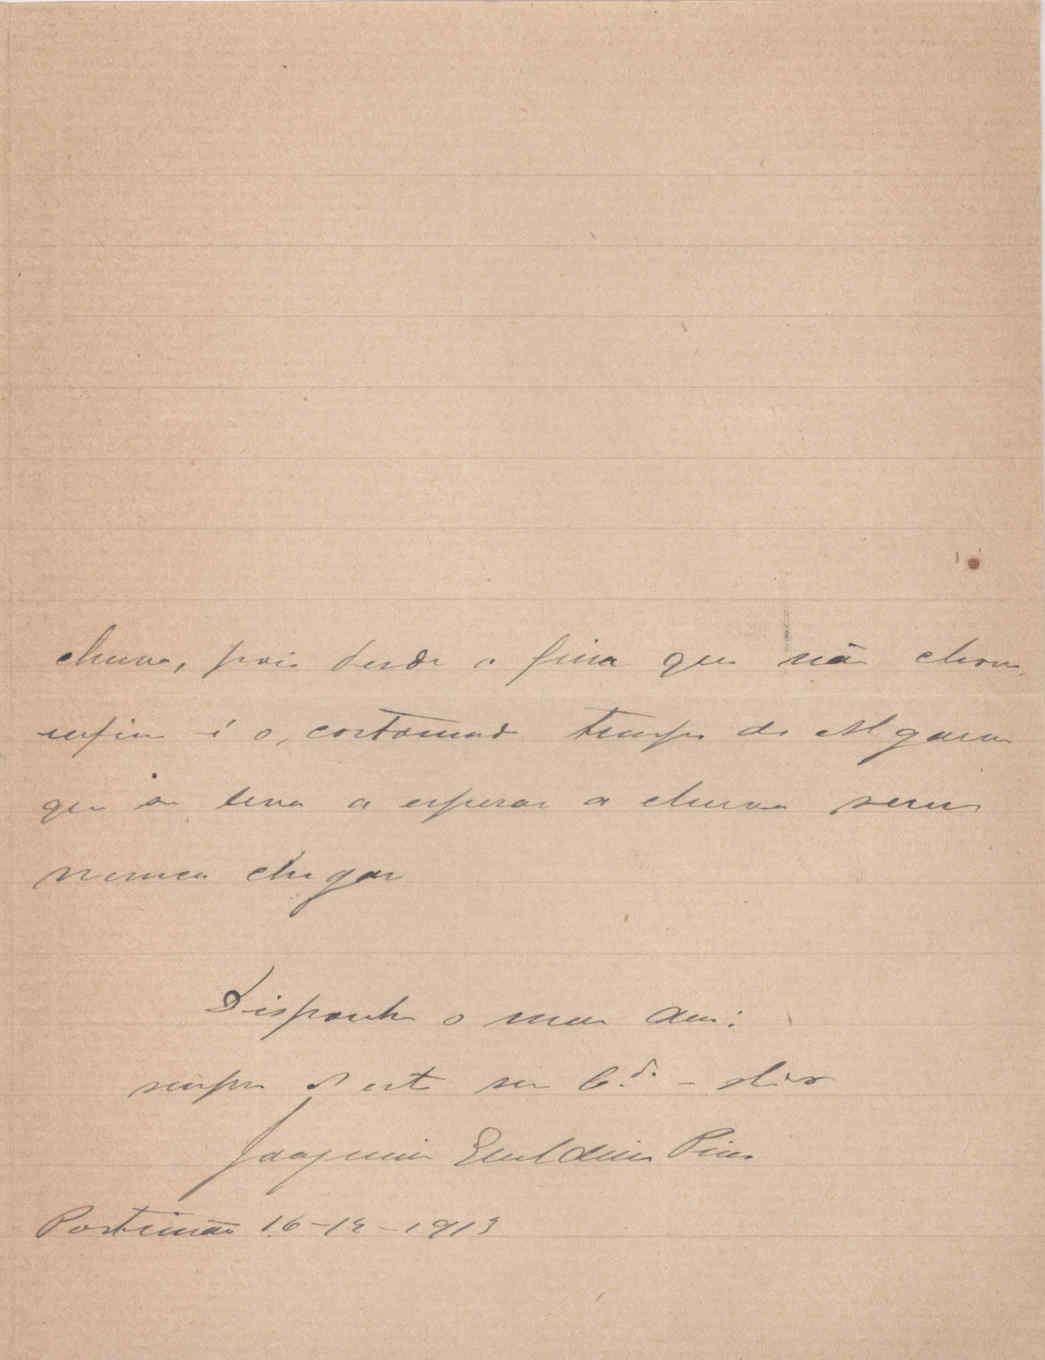 chuva, pois desde a feira que não chove,
enfim é o costumado tempo do Algarve
que se leva a esperar a chuva sem
nunca chegar
Disponha o meu Am:
sempre d'este seu C.do
Joaquim Pires
Portimão 16-12-1913